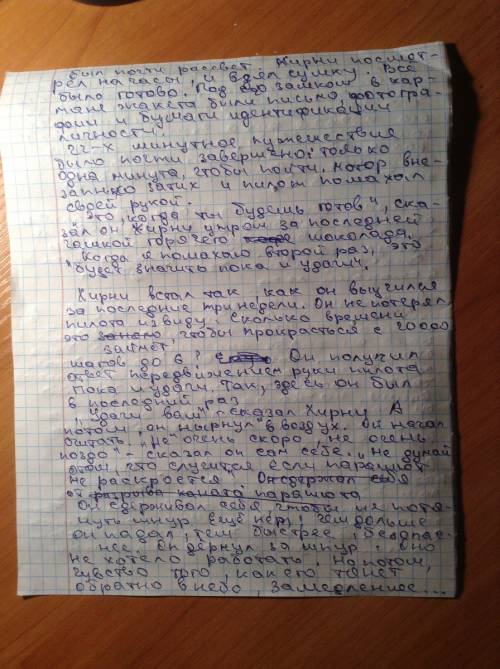 был почти рассвет. Хирни посмот-
рел на часы, и взял сумку. Все
было готово. Под замком в кар-
мане жакета были письма, фотогра-
фии и бумаги идентификации
личности.
22-х минутное путешествие
было почти завершено: только
одна минута, чтобы пойти. Мотор вне-
запно затих и пилот помахал
своей рукой.
"Это, когда ты будешь готов", ска-
зал он Хирни утром за последней
чашкой горячего шоколада.
"Когда я помахаю второй раз, это
будет значить пока и удачи".
Хирни встал так как он выучился
за последние три недели. Он не потерял
пилота из виду. Сколько времени
это чтобы прокрасться с 2000
займёт
шагов до 6? Он получил
ответ передвижением руки пилота
Пока и удачи. Так, здесь он был
в последний раз
"Удачи вам" - сказал Хирни А
потом он нырнул в воздух. Он начал
считать. "Не очень скоро, не очень
поздо" - сказал он сам себе. "Не думай
о том, что случится если парашют
не раскроется" Он сдержал себя
от разрыва каната парашюта
Он сдерживал себя чтобы не потя-
нуть шнур. Ещё нет, чем дольше
он падал, тем быстрее, безопас-
нее. Он дёрнул за шнур. Оно
не хотело работать. Но потом,
чувство того, как его тянет
обратно в небо, замедление...